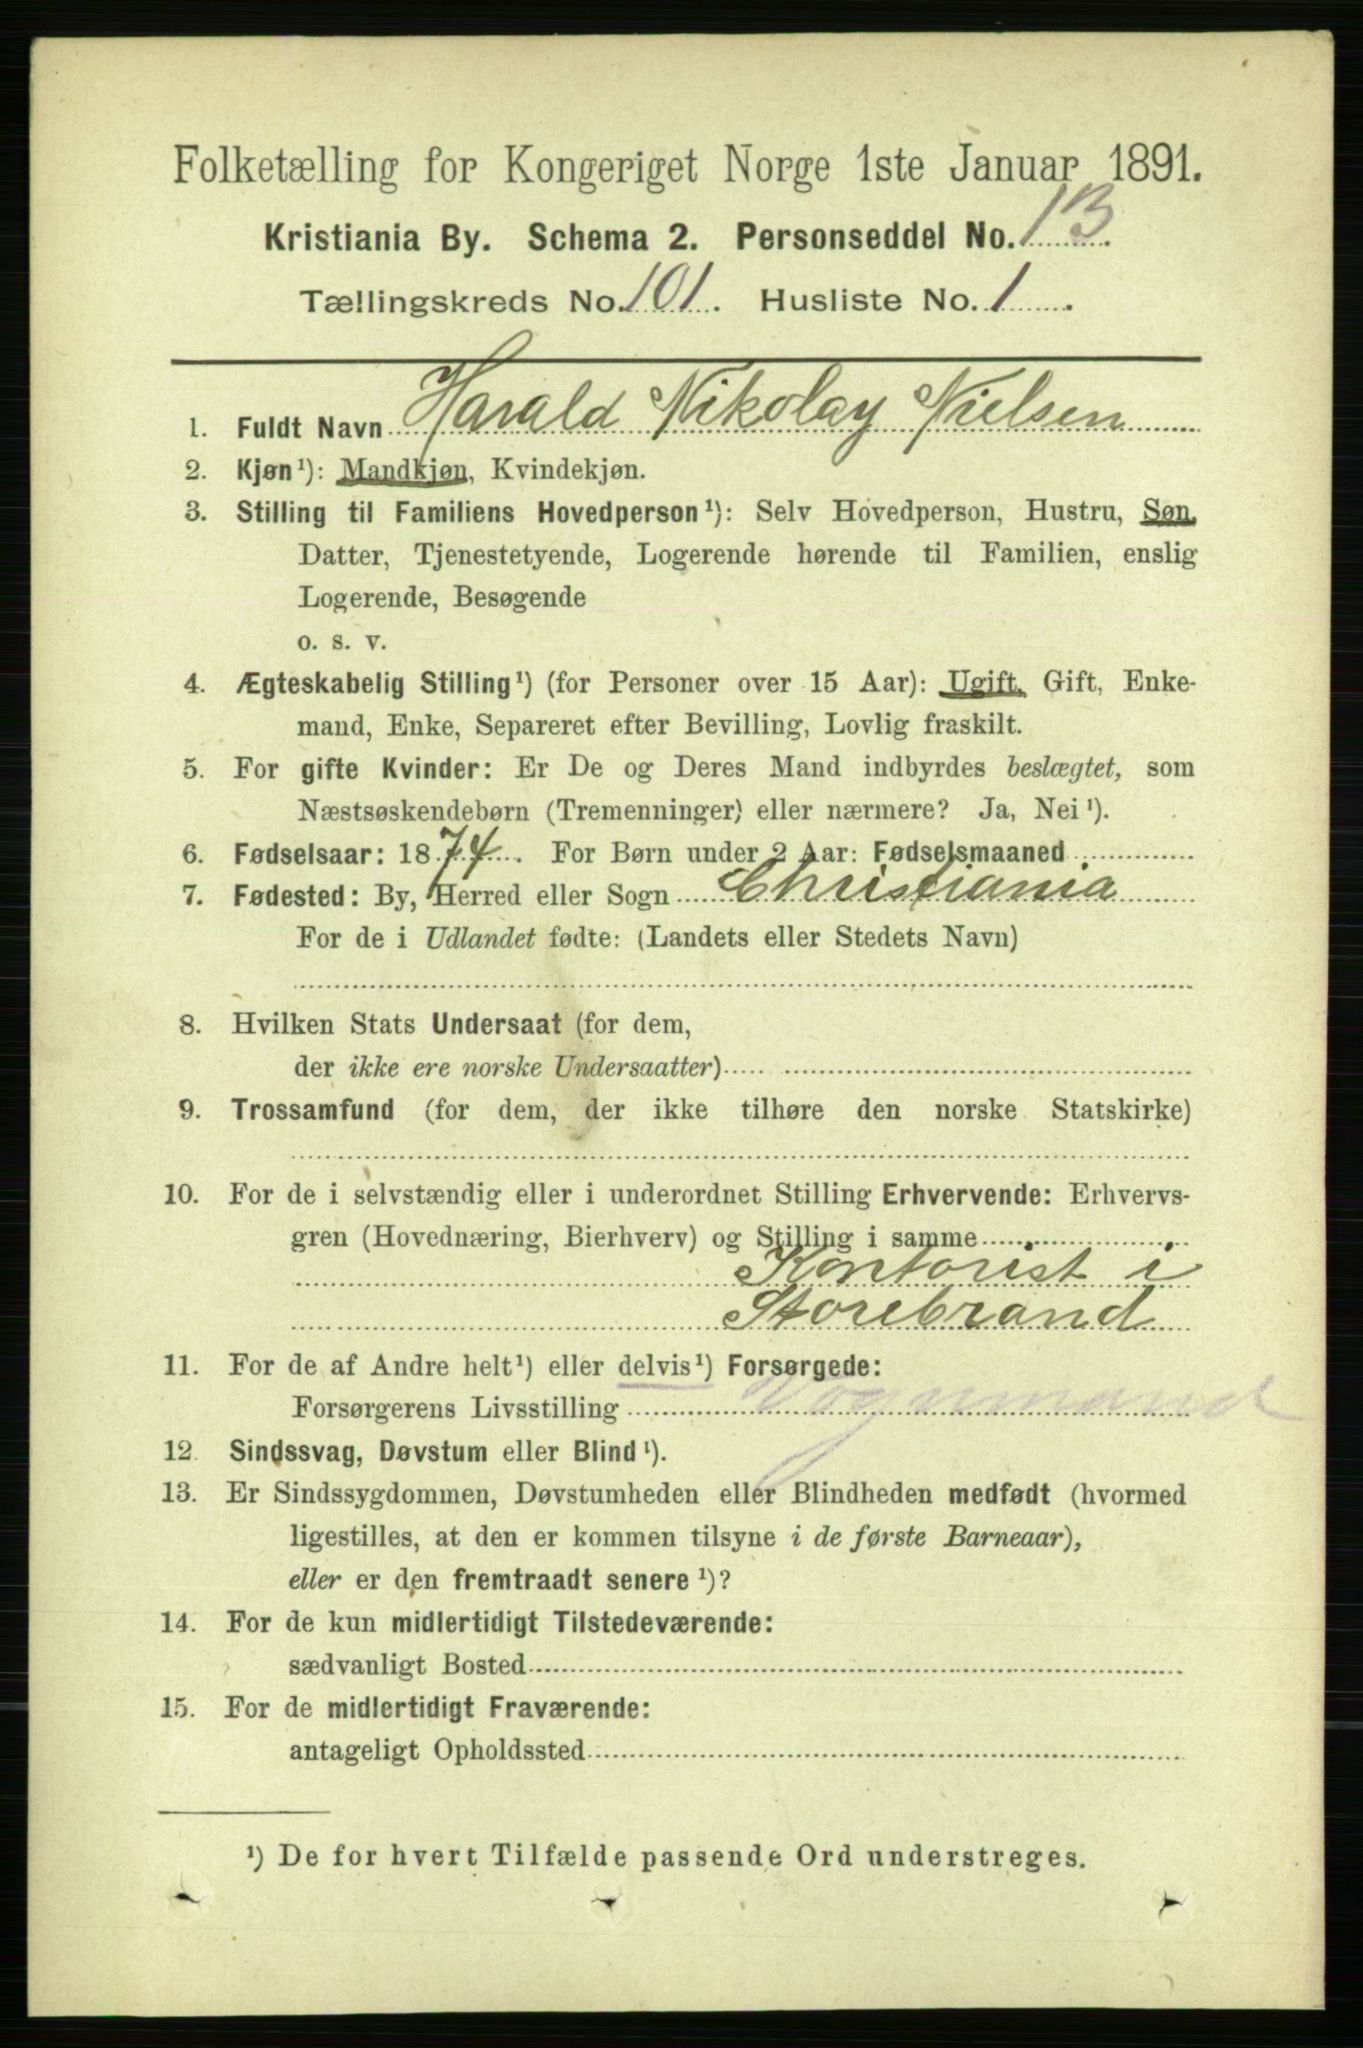 Folketælling for Kongeriget Norge 1ste Januar 1891.
Kristiania By. Schema 2. Personseddel No. 13.
Tællingskreds No. 101. Husliste No. 1.
1. Fuldt Navn Harald Nikolay Nielsen
2. Kjøn¹): Mandkjøn, Kvindekjøn.
3. Stilling til Familiens Hovedperson¹): Selv Hovedperson, Hustru, Søn,
Datter, Tjenestetyende, Logerende hørende til Familien, enslig
Logerende, Besøgende
o. s. v.
4. Ægteskabelig Stilling¹) (for Personer over 15 Aar): Ugift, Gift, Enke-
mand, Enke, Separeret efter Bevilling, Lovlig fraskilt.
5. For gifte Kvinder: Er De og Deres Mand indbyrdes beslægtet, som
Næstsøskendebørn (Tremenninger) eller nærmere? Ja, Nei¹).
6. Fødselsaar: 1874. For Børn under 2 Aar: Fødselsmaaned
7. Fødested: By, Herred eller Sogn Christiania
For de i Udlandet fødte: (Landets eller Stedets Navn)
8. Hvilken Stats Undersaat (for dem,
der ikke ere norske Undersaatter)
9. Trossamfund (for dem, der ikke tilhøre den norske Statskirke)
10. For de i selvstændig eller i underordnet Stilling Erhvervende: Erhvervs-
gren (Hovednæring, Bierhverv) og Stilling i samme
Kontorist i
Storebrand
11. For de af Andre helt¹) eller delvis¹) Forsørgede:
Forsørgerens Livsstilling Vognmand
12. Sindssvag, Døvstum eller Blind¹).
13. Er Sindssygdommen, Døvstumheden eller Blindheden medfødt (hvormed
ligestilles, at den er kommen tilsyne i de første Barneaar),
eller er den fremtraadt senere¹)?
14. For de kun midlertidigt Tilstedeværende:
sædvanligt Bosted
15. For de midlertidigt Fraværende:
antageligt Opholdssted
¹) De for hvert Tilfælde passende Ord understreges.